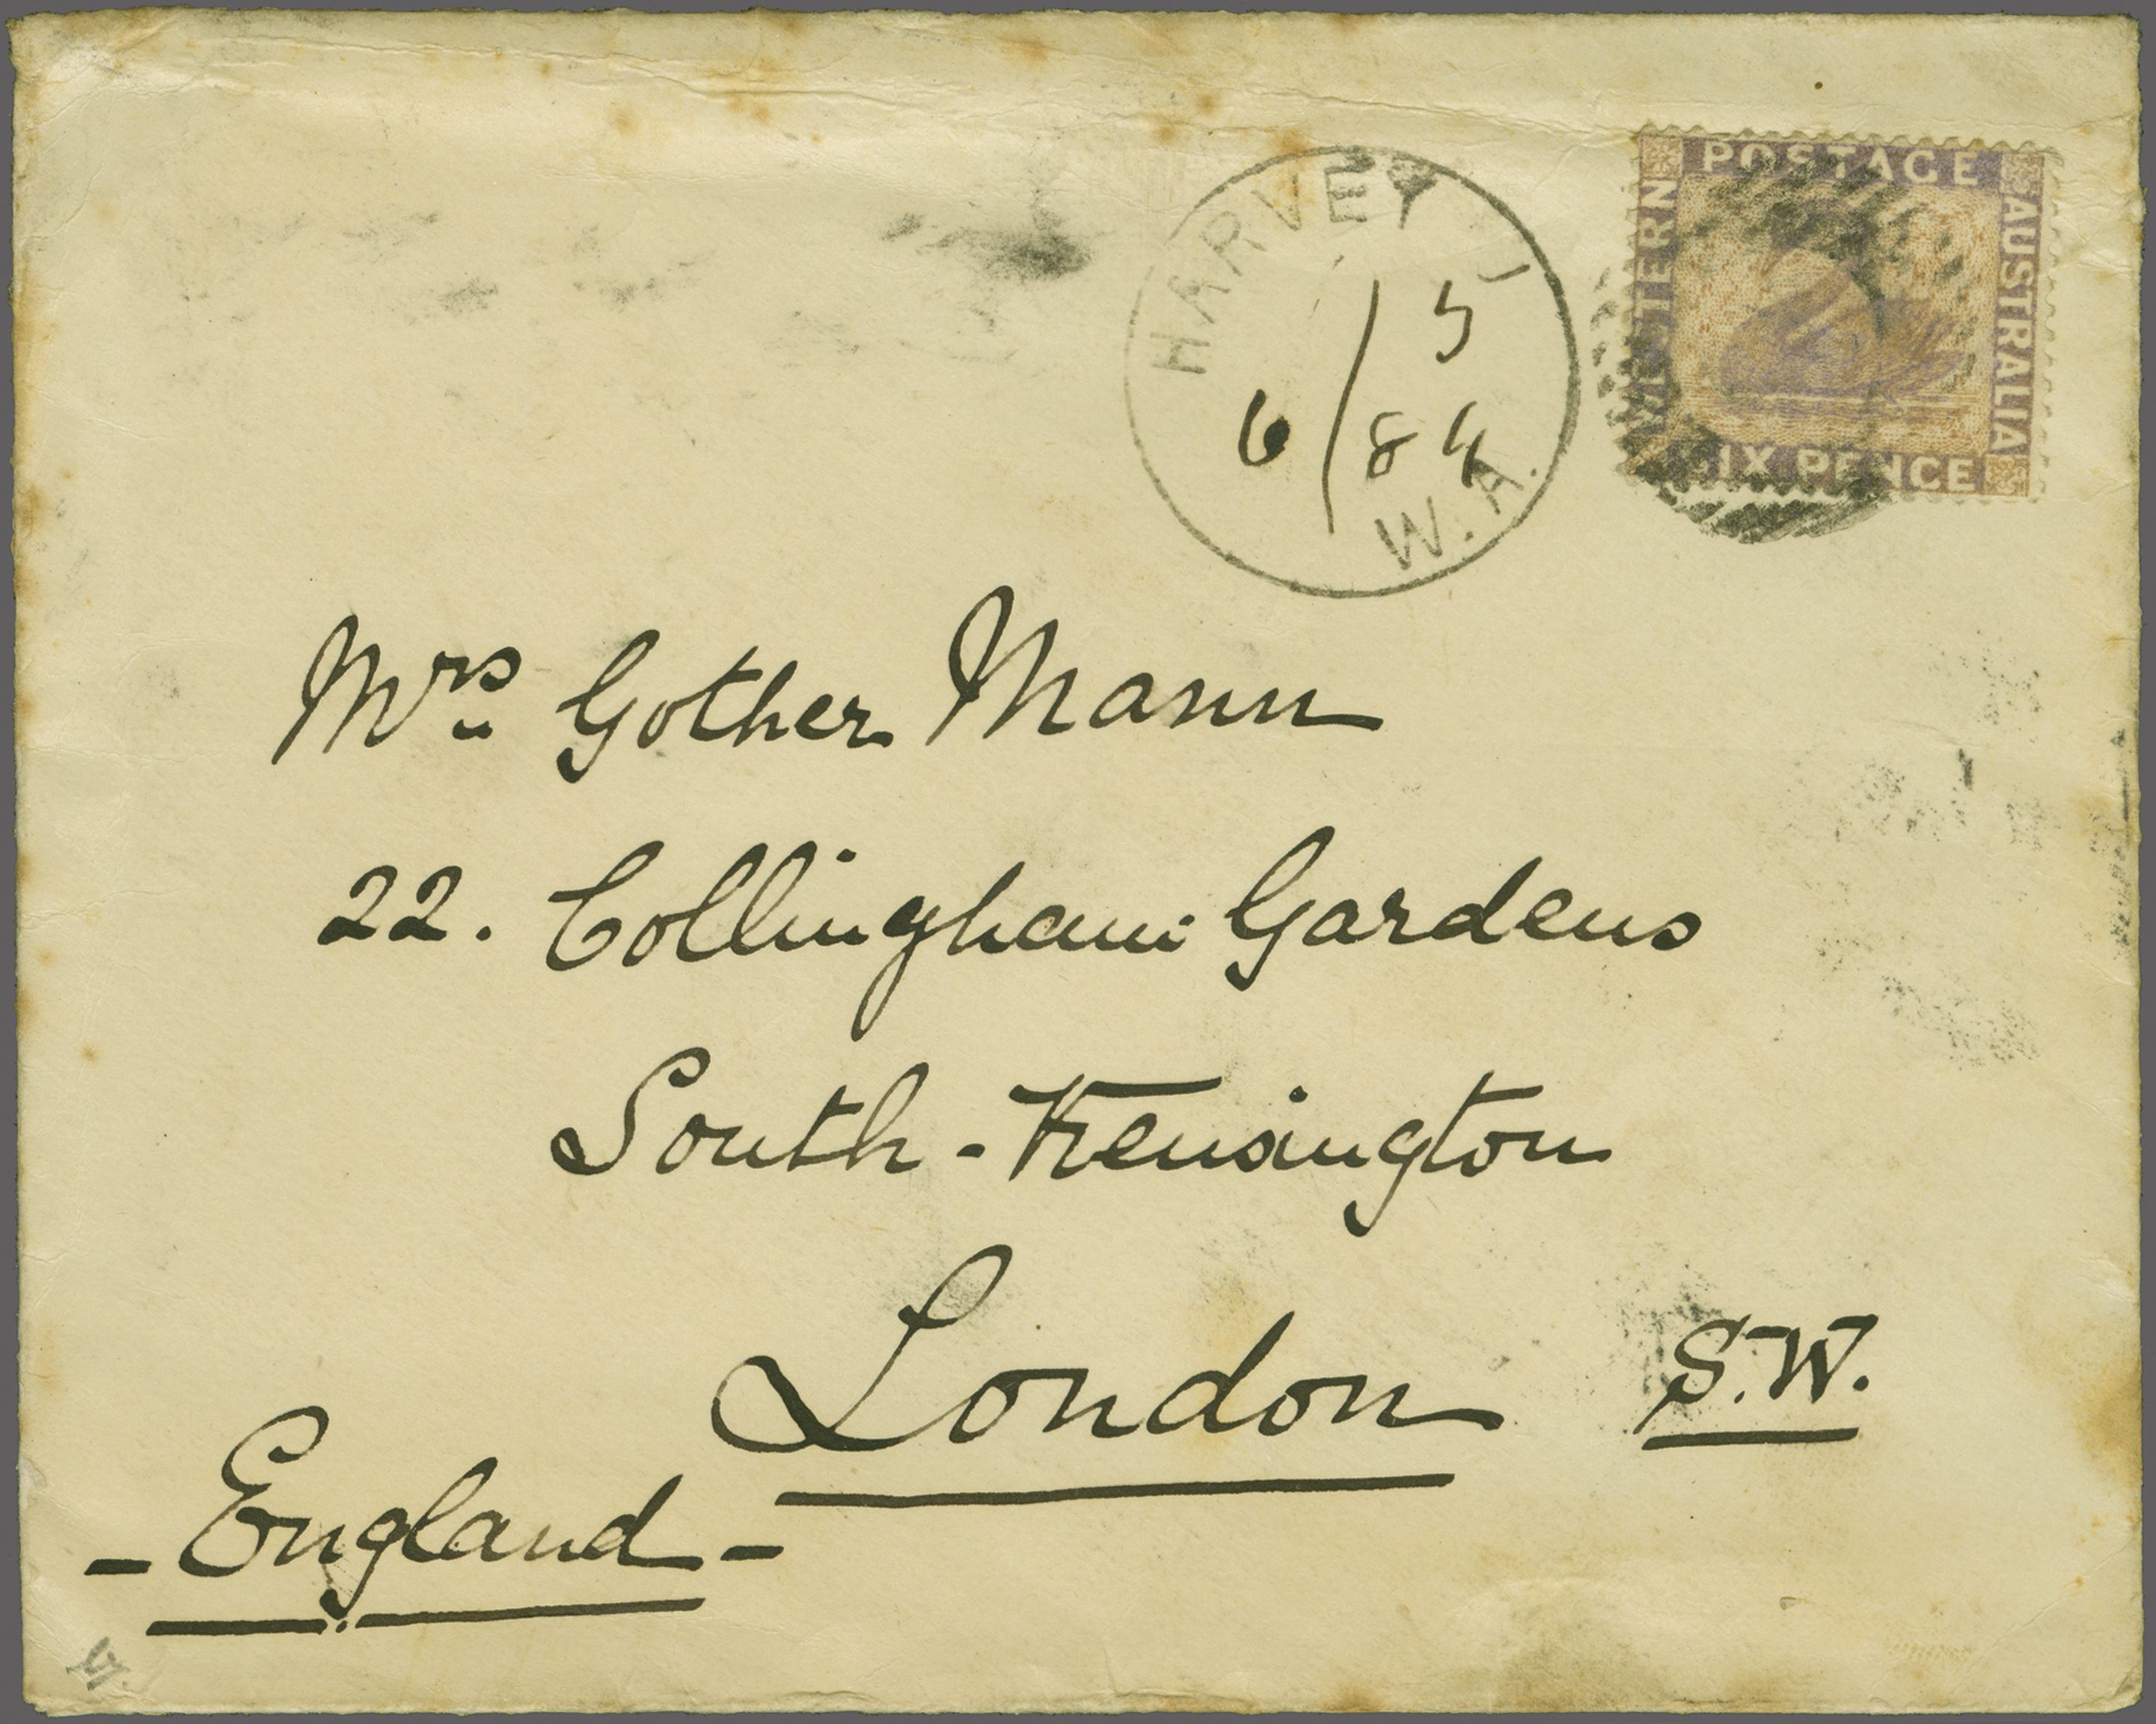 POSTAGE
WESTERN
AUSTRALIA
SIX PENCE
HARVEY
5
6 / 84
W.A.
Mrs Gother Mann
22. Collingham Gardens
South-Kensington
London S.W.
- England -